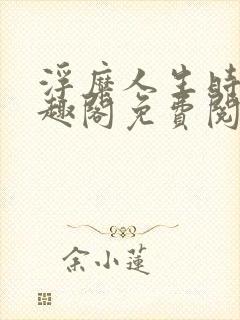 浮靡人生時
趣閣免費閱
余小蓮